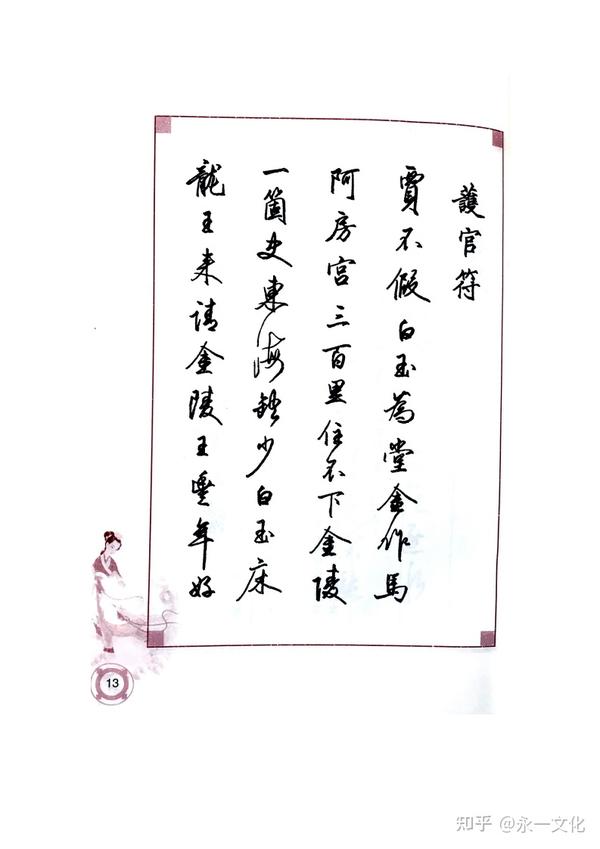 護官符
賈不假白玉為堂金作馬
阿房宮三百里住不下金陵
一箇史東海缺少白玉床
龍王来請金陵王豐年好
13
知乎 @永一文化